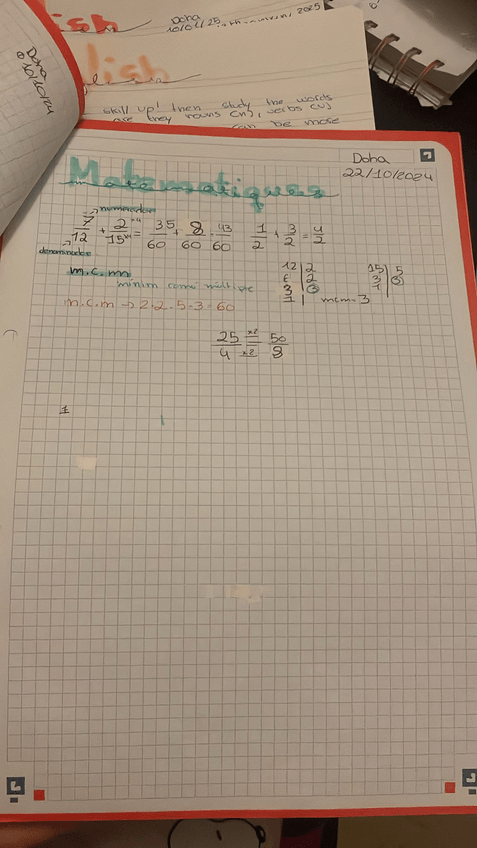 Doha
10/01/25
2025
lish
Doha
10/10/24
skill up! then study the words
are they nouns (n), verbs (v)
can be more
Doha
22/10/2024
Matemàtiques
numerador
7/12 + 2/15 = 35/60 + 8/60 = 43/60 1/2 + 3/2 = 4/2
denominador
m.c.m
mínim comú múltiple
m.c.m → 2·2·5·3 = 60
12 | 2
6 | 2
3 | 3
1 |
15 | 5
3 | 3
1
mcm = 3
25/4 = 50/8
×2
×2
1